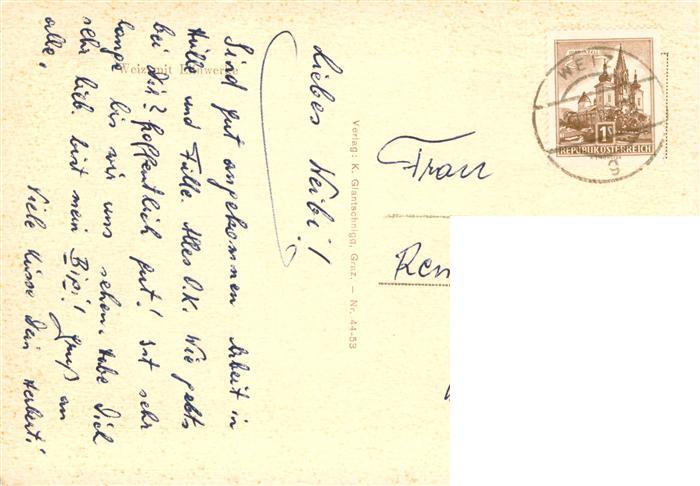 Liebes Weibi!
Sind gut angekommen Arbeit in
Hülle und Fülle. Alles O.K. Wie gehts
bei Dir? hoffentlich gut! ist sehr
lange bis wir uns sehen. Habe Dich
sehr lieb. bist mein Bipi! Gruß an
alle,
Viele Küsse Dein Herbert!
Weiz mit
Verlag: K. Glantschnigg, Graz. — Nr. 44-53
Frau
Ren
WEIZ
g
1S
REPUBLIK ÖSTERREICH